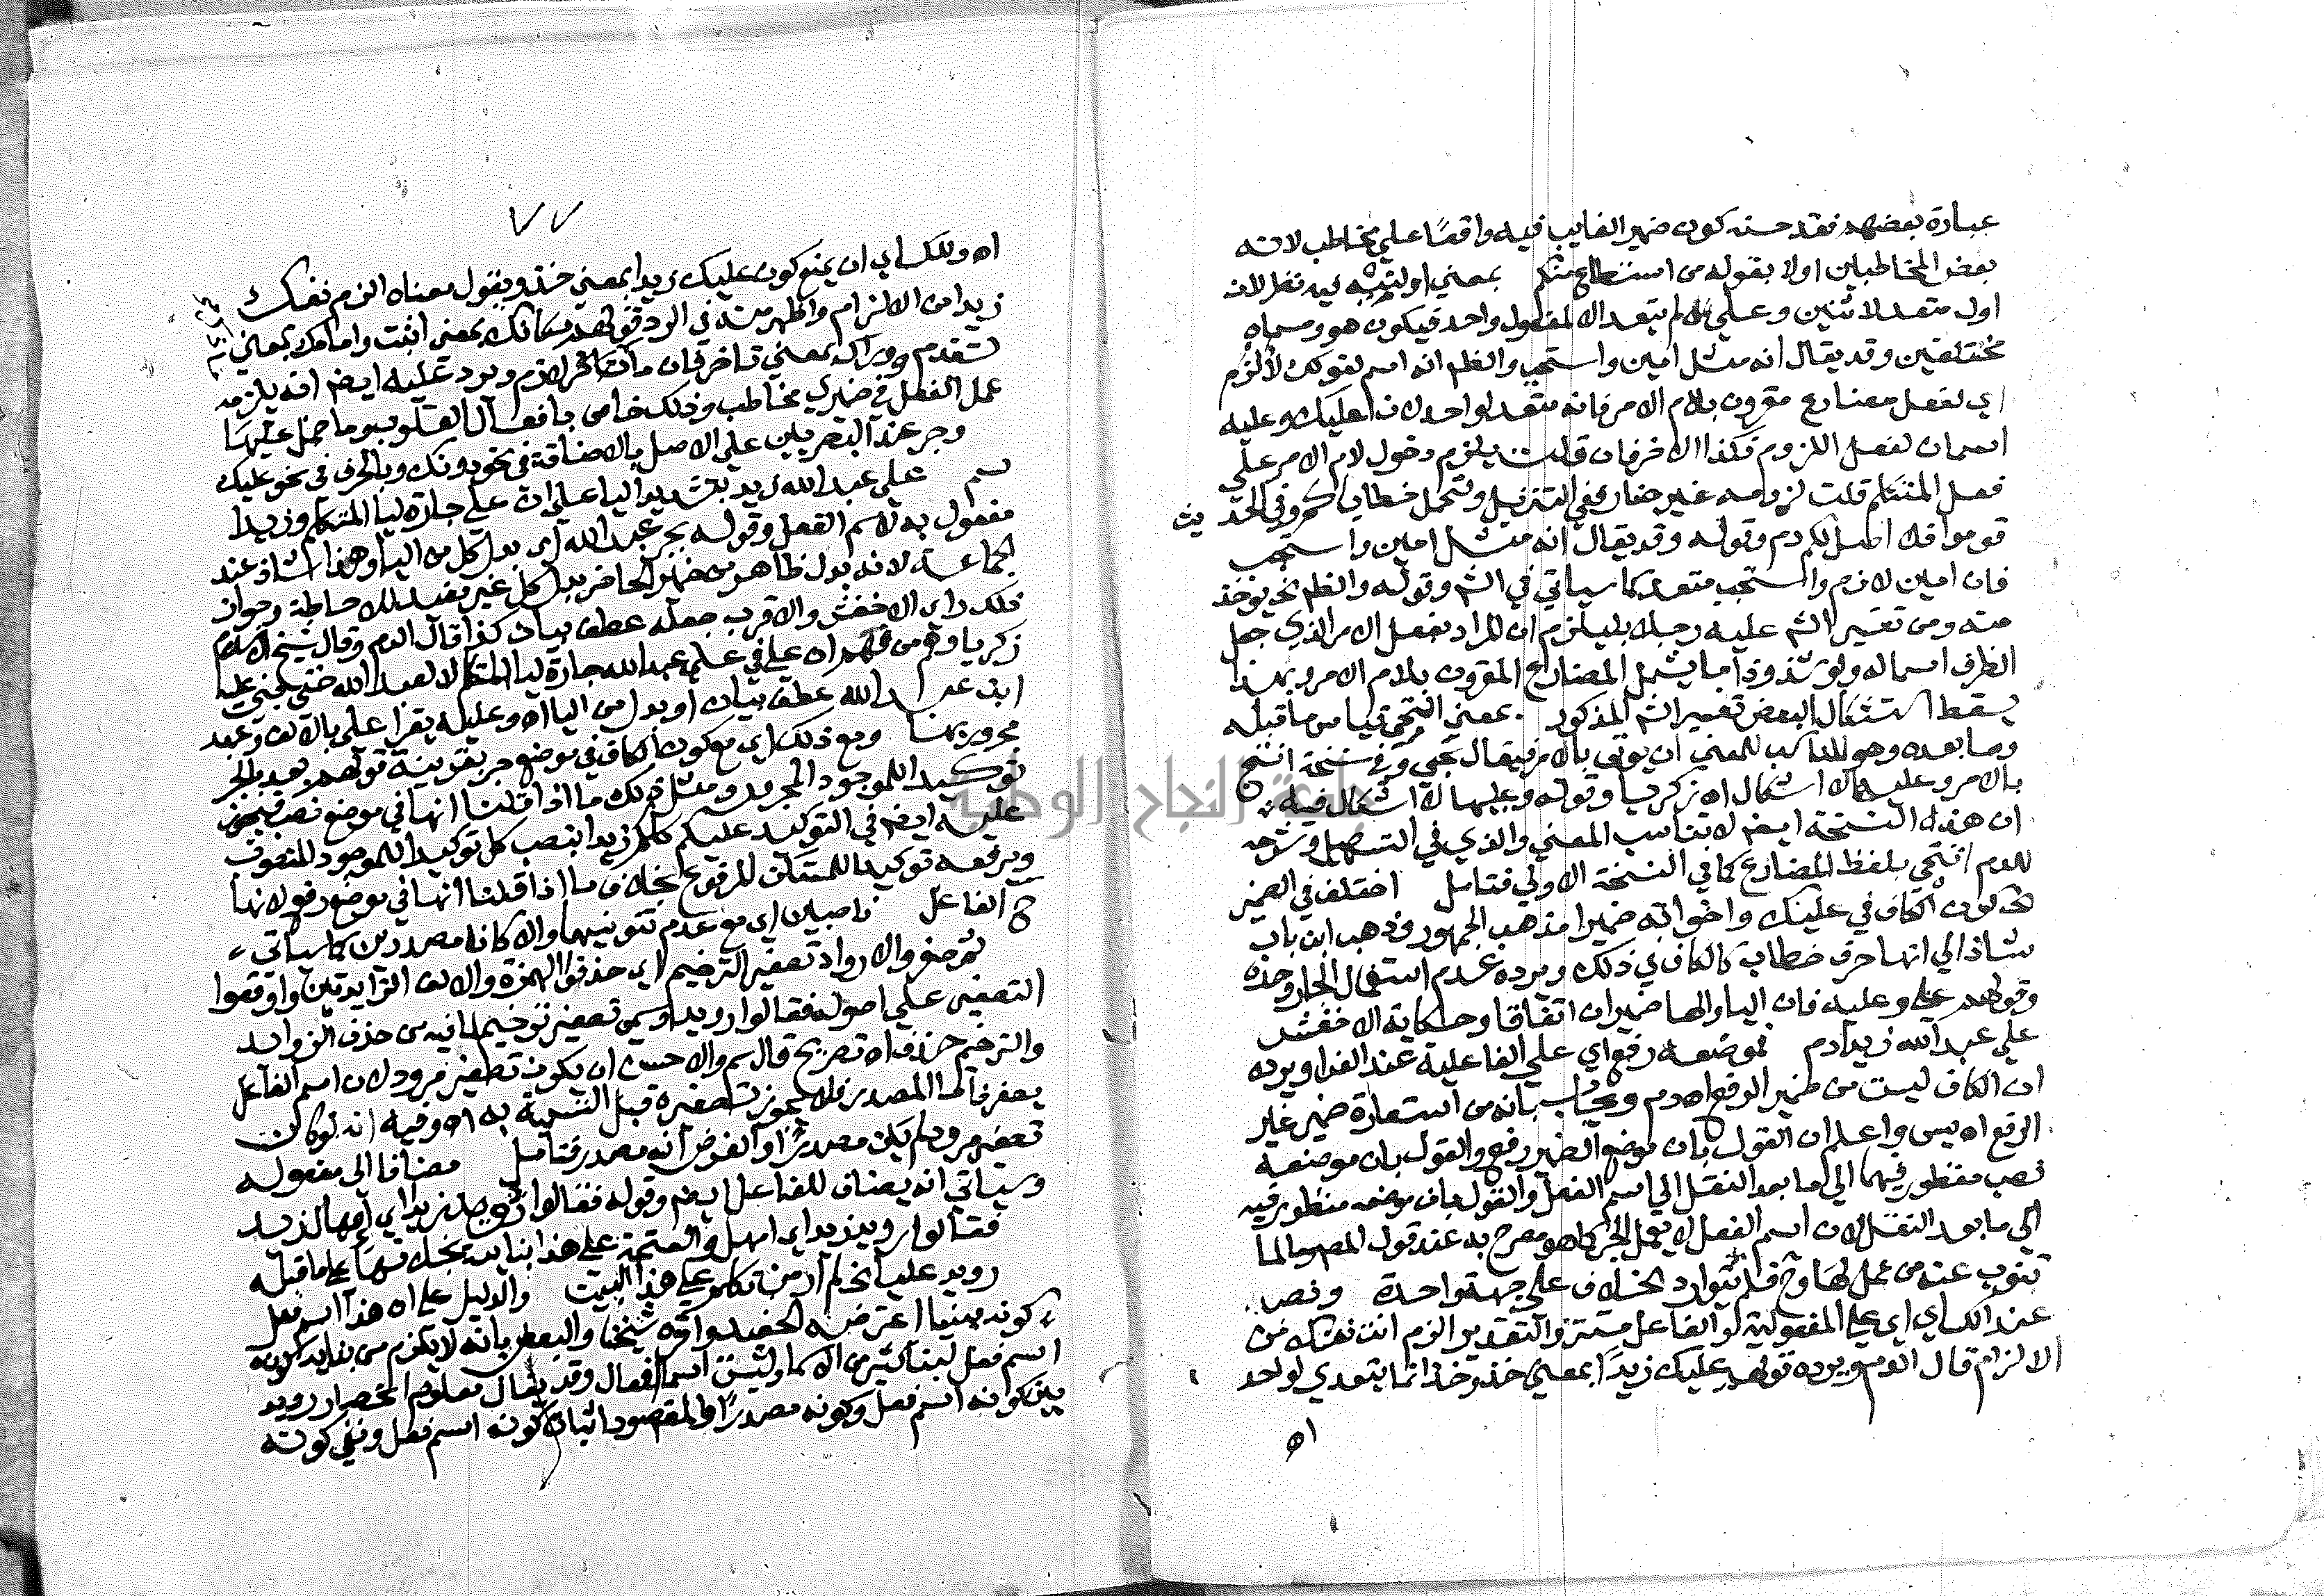 عبارة بعضهم فقد حسنه كون ضمير الغايب فيه واقعا علي مخاطب لانه
بعض المخاطبين اولا بقوله من استطاع منكم بمعني اوليته فيه نظر لان
اول متعد لاثنين وعلي لم يتعد الا لمفعول واحد فيكون هو ومسماه
مختلفين وقد يقال انه مثل امين واستجب والظم انه اسم لقولك لألزم
اي لفعل مضارع مقرون بلام الامر فانه متعد لواحد لان عليك وعليه
اسمان لفعل اللزوم فكذا الاخر فان قلت يلزم دخول لام الامر علي
فعل المتكلم قلت لزومه غير ضار ففي التنزيل ولنحمل خطاياكم وفي الحديث
قوموا فلاصل لكم دم وقوله وقد يقال انه مثل امين واستجب
فان امين لازم واستجب متعد كما سياتي في الشم وقوله والظم الخ يوخذ
منه ومن تفسير الشم عليه رجلا بليلزم ان المراد بفعل الامر الذي جعل
الظرف اسما له ولو شذوذا ما يشمل المضارع المقرون بلام الامر وبهذا
يسقط استشكال البعض تفسير الشم المذكور بمعني انتحي فيا من ما قبله
وما بعده وهو المناسب للمعني ان يوتي بالامر فيقال تنحي وفي نسخة انتح
بالامر وعليها لا اشكال اه زكريا وقوله وعليها لا اشكال فيه
ان هذه النسخة ايضا لا تناسب المعني والذي في التسهيل وشرحه
للدم انتحي بلفظ المضارع كما في النسخة الاولي فتامل اختلف في الضمير
كون الكاف في عليك واخواته ضميرا مذهب الجمهور وذهب ابن باب
شاذ الي انها حرف خطاب كالكاف في ذلك ويرده عدم استعمال الجار وحده
وقولهم علي وعليه فان اليا والها ضميران اتفاقا وحكاية الاخفش
علي عبد الله زيدا دم فموضعه رفع اي علي الفاعلية عند الفرا ويرده
ان الكاف ليست من ضمير الرفع اه دم ويجاب بانه من استعارة ضمير غير
الرفع اه يس واعلم ان القول بان موضع الضمير رفع والقول بان موضعه
نصب منظور فيهما الي ما بعد النقل الي اسم الفعل والقول بان موضعه منظور فيه
الي ما بعد النقل لان اسم الفعل لا يعمل الجر كما هو مصرح به عند قول المصم وما لما
تنوب عنه من عمل لها وح فلم يتوارد الخلاف علي جهة واحدة ونصب
عند الكساي اي علي المفعولية والفاعل مستتر والتقدير الزم انت نفسك من
الالزام قال الدم ويرده قولهم عليك زيدا بمعني خذ وخذ انما يتعدي لواحد
اه
٧٧
اه وللكساي ان يمنع كون عليك زيدا بمعني خذ ويقول معناه الزم نفسك
زيدا من الالزام واظهر منه في الرد قولهم مكانك بمعني اثبت وامامك بمعني
تقدم ووراك بمعني تاخر فان ما ذكر لازم ويرد عليه ايضا انه يلزمه
عمل الفعل في ضميري مخاطب وذلك خاص بافعال القلوب وما حمل عليها
وجر عند البصريين علي الاصل بالاضافة في نحو دونك وبالحرف في نحو عليك
سم علي عبد الله زيد بتشديد اليا علي ان علي جارة ليا المتكلم وزيدا
مفعول به لاسم الفعل وقوله بجر عبد الله اي بدل كل من اليا وهذا شاذ عند
الجماعة لانه بدل ظاهر من ضمير الحاضر بدل كل غير مفيد للاحاطة وجواز
ذلك راي الاخفش والاقرب جعله عطف بيان كذا قال الدم وقال شيخ الاسلام
زكريا وهم من فهم ان علي في علي عبد الله جارة ليا المتكلم لا لعبد الله حتي يبني عليه
ان عبد الله عطف بيان او بدل من اليا اه وعليه يقرا علي بالالف وعبد
مجرور بها ومع ذلك اي مع كون الكاف في موضع جر بقرينة قوله بعد بالجر
توكيدا للموجود المجرور ومثل ذلك ما اذا قلنا انها في موضع نصب فيجوز
عليه ايضا في التوكيد عليكم كلكم زيدا بنصب كل توكيدا للموجود المنصوب
وبرفعه توكيدا للمستكن المرفوع بخلاف ما اذا قلنا انها في موضع رفع لانها
ح الفاعل ناصبين اي مع عدم تنوينهما والا كانا مصدرين كما سياتي
ثم صغروا الارواد تصغير الترخيم اي حذفوا الهمزة والالف الزايدتين واوقعوا
التصغير علي اصوله فقالوا رويدا وسمي تصغير ترخيم لما فيه من حذف الزوايد
والترخيم حذف اه تصريح قال سم والاحسن ان يكون تصغير مرود لان اسم الفاعل
يصغر فاما المصدر فلا يجوز تصغيره قبل التسمية به اه وفيه انه لو كان
تصغير مرود لم يكن مصدرا والفرض انه مصدر فتامل مضافا الي مفعوله
وسياتي انه يضاف للفاعل ايضا وقوله فقالوا رويد زيد اي امهال زيد
فقالوا رويد زيدا اي امهل والفتحة علي هذا بنايه بخلافها علي ما قبله
رويد عليا الخ لم ار من تكلم علي هذا البيت والدليل علي ان هذا اسم فعل
كونه مبنيا اعترضه الحفيد واقره شيخنا والبعض بانه لا يلزم من بنايه كونه
اسم فعل لبنا كثير من الاسما وليست اسما افعال وقد يقال معلوم انحصار رويد
بين كونه اسم فعل وكونه مصدرا والمقصود اثبات كونه اسم فعل ونفي كونه
جامعة النجاح الوطنية